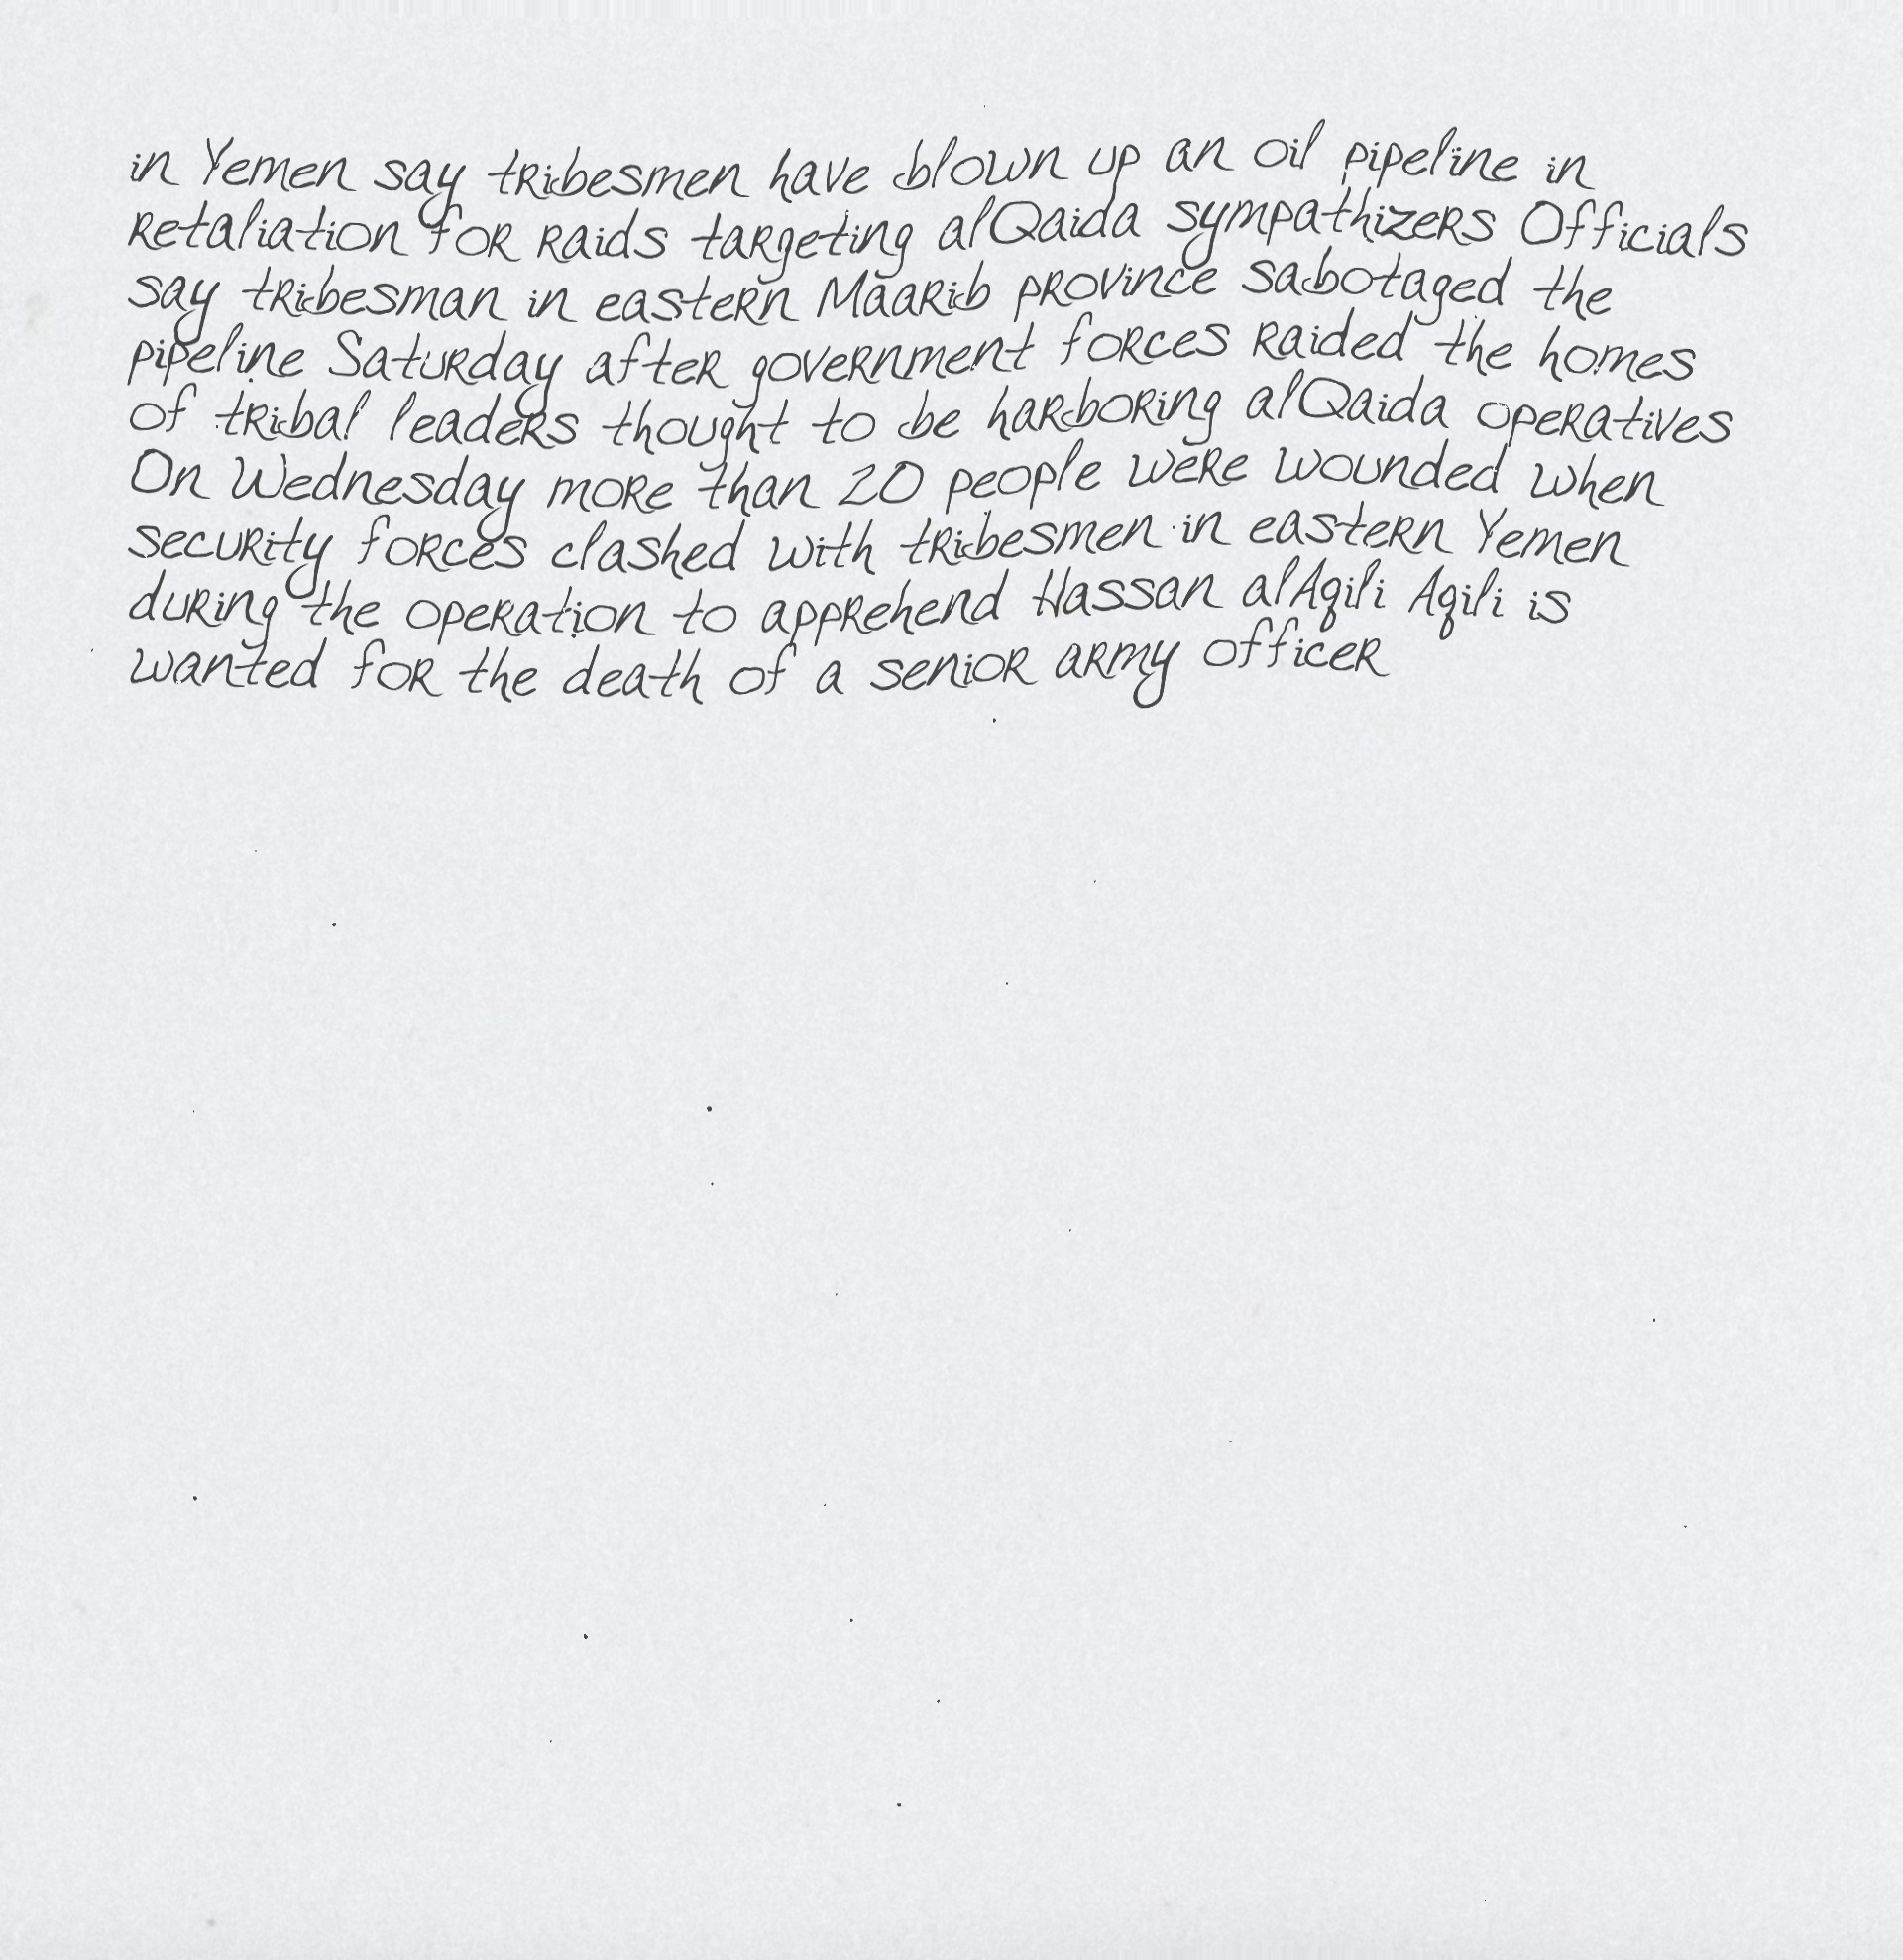 in Yemen say tribesmen have blown up an oil pipeline in
retaliation for raids targeting alQaida sympathizers Officials
say tribesman in eastern Maarib province sabotaged the
pipeline Saturday after government forces raided the homes
of tribal leaders thought to be harboring alQaida operatives
On Wednesday more than 20 people were wounded when
security forces clashed with tribesmen in eastern Yemen
during the operation to apprehend Hassan alAqili Aqili is
wanted for the death of a senior army officer